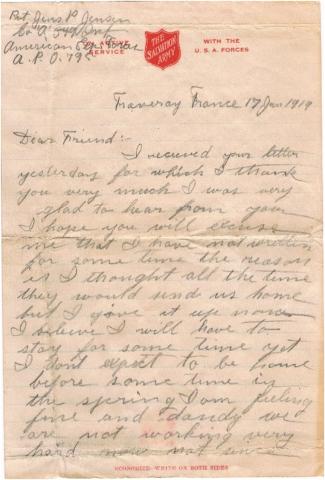 Pvt. Jens P. Jensen
Co "A" Inf
American Ex. Forces
A. P. O. 795
ON ACTIVE SERVICE
THE SALVATION ARMY
WITH THE U. S. A. FORCES
Traveray France 17 Jan 1919
Dear Friend:-
I recieved your letter
yesterday for which I thank
you very much I was very
glad to hear from you
I hope you will excuse
me that I have not written
for some time the reason
is I thought all the time
they would send us home
but I gave it up now
I believe I will have to
stay for some time yet
I dont expect to be home
before some time in
the spring I am feeling
fine and dandy we
are not working very
hard now not since
ECONOMIZE-WRITE ON BOTH SIDES